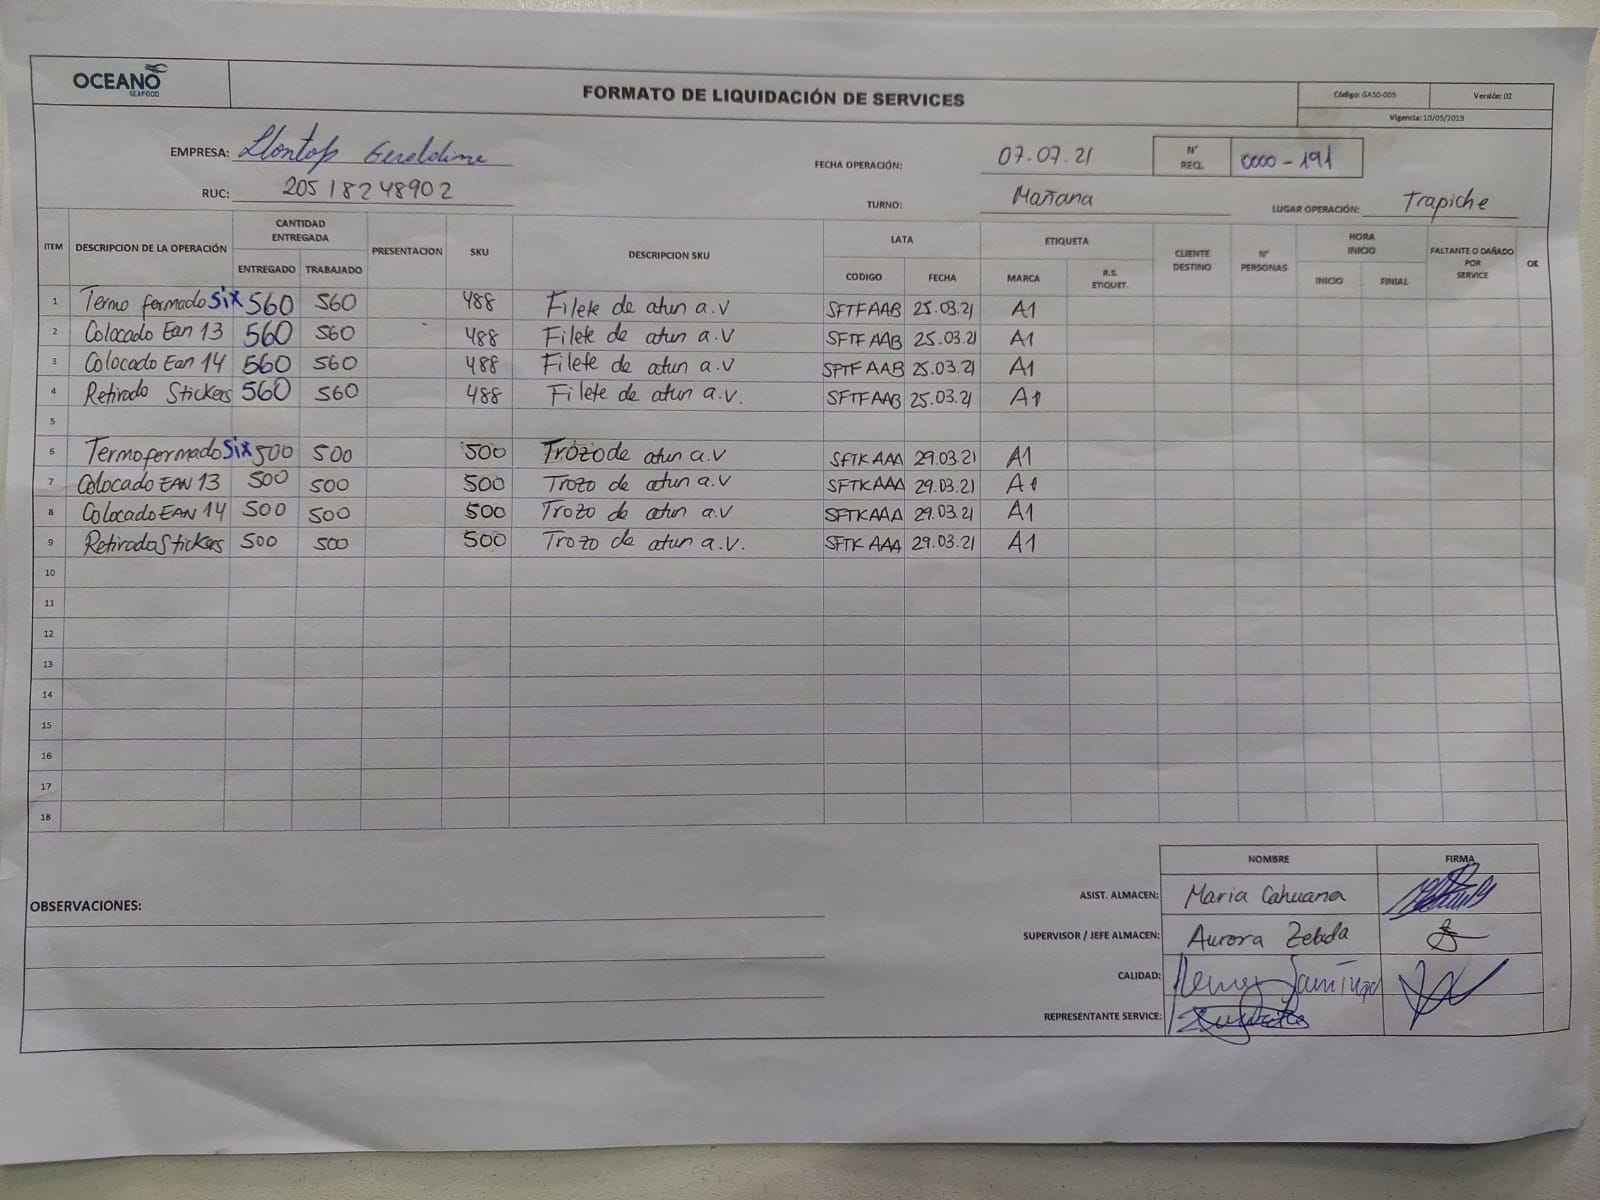 OCEANO
SEAFOOD
FORMATO DE LIQUIDACIÓN DE SERVICES
Código: GA50-005 Versión: 02
Vigencia: 10/05/2019
EMPRESA: Llontop Geraldine
FECHA OPERACIÓN: 07.07.21 N° REQ. 0000-191
RUC: 20518248902
TURNO: Mañana LUGAR OPERACIÓN: Trapiche
ITEM DESCRIPCION DE LA OPERACIÓN CANTIDAD ENTREGADA PRESENTACION SKU DESCRIPCION SKU LATA ETIQUETA CLIENTE DESTINO N° PERSONAS HORA INICIO FALTANTE O DAÑADO POR SERVICE OK
ENTREGADO TRABAJADO CODIGO FECHA MARCA R.S. ETIQUET. INICIO FINIAL
1 Termo formado Six 560 560 488 Filete de atun a.v SFTFAAB 25.03.21 A1
2 Colocado Ean 13 560 560 488 Filete de atun a.v SFTFAAB 25.03.21 A1
3 Colocado Ean 14 560 560 488 Filete de atun a.v SFTFAAB 25.03.21 A1
4 Retirado Stickers 560 560 488 Filete de atun a.v. SFTFAAB 25.03.21 A1
5
6 Termoformado Six 500 500 500 Trozo de atun a.v SFTKAAA 29.03.21 A1
7 Colocado EAN 13 500 500 500 Trozo de atun a.v SFTKAAA 29.03.21 A1
8 Colocado EAN 14 500 500 500 Trozo de atun a.v SFTKAAA 29.03.21 A1
9 Retirado Stickers 500 500 500 Trozo de atun a.v. SFTKAAA 29.03.21 A1
10
11
12
13
14
15
16
17
18
NOMBRE FIRMA
OBSERVACIONES:
ASIST. ALMACEN: Maria Cahuana
SUPERVISOR / JEFE ALMACEN: Aurora Zelada
CALIDAD:
REPRESENTANTE SERVICE: